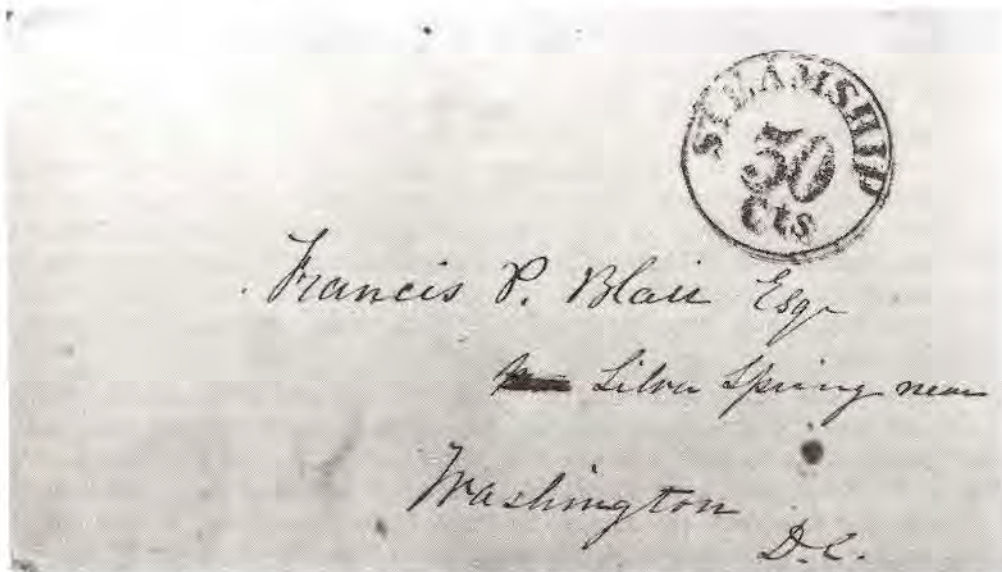 STEAMSHIP
30
Cts
Francis P. Blair Esqr
Silver Spring near
Washington
D.C.